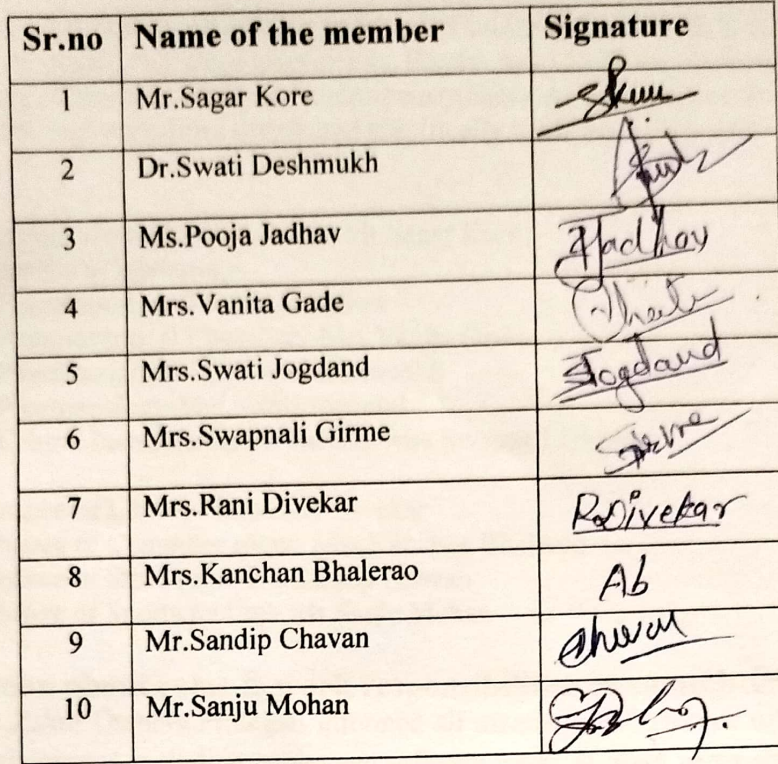 Sr.no Name of the member Signature
1 Mr.Sagar Kore
2 Dr.Swati Deshmukh
3 Ms.Pooja Jadhav Jadhav
4 Mrs.Vanita Gade
5 Mrs.Swati Jogdand Jogdand
6 Mrs.Swapnali Girme
7 Mrs.Rani Divekar R.Divekar
8 Mrs.Kanchan Bhalerao Ab
9 Mr.Sandip Chavan
10 Mr.Sanju Mohan